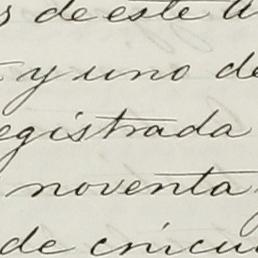 s de este
y uno de
egistrada
noventa
de cincu